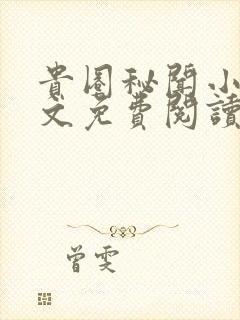 貴圈秘聞小
文免費閱讀
曾雯